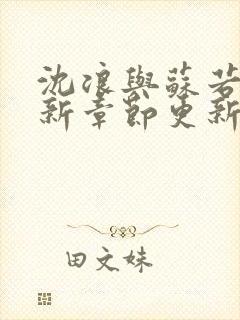 沈浪與蘇若
新章節更新
田文妹